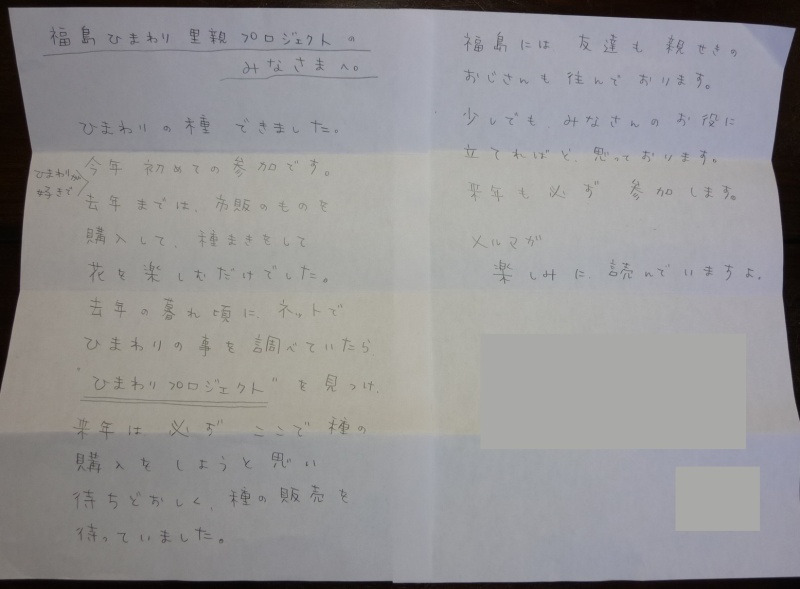 福島ひまわり里親プロジェクトの
みなさまへ。
ひまわりの種 できました。
ひまわりが
好きで
今年 初めての参加です。
去年までは、市販のものを
購入して、種まきをして
花を楽しむだけでした。
去年の暮れ頃に、ネットで
ひまわりの事を調べていたら
"ひまわりプロジェクト"を見つけ、
来年は 必ず ここで種の
購入をしようと思い
待ちどおしく、種の販売を
待っていました。
福島には 友達も 親せきの
おじさんも 住んでおります。
少しでも、みなさんのお役に
立てればと、思っております。
来年も必ず 参加します。
メルマガ
楽しみに、読んでいますよ。